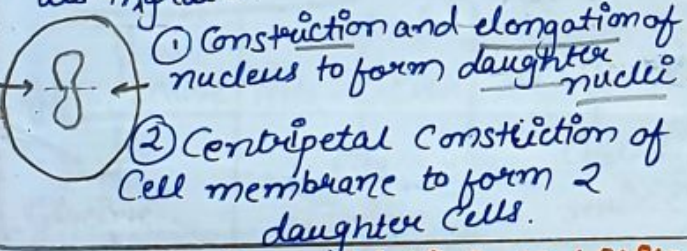 ① Constriction and elongation of
nucleus to form daughter
nuclei
② Centripetal Constriction of
Cell membrane to form 2
daughter Cells.